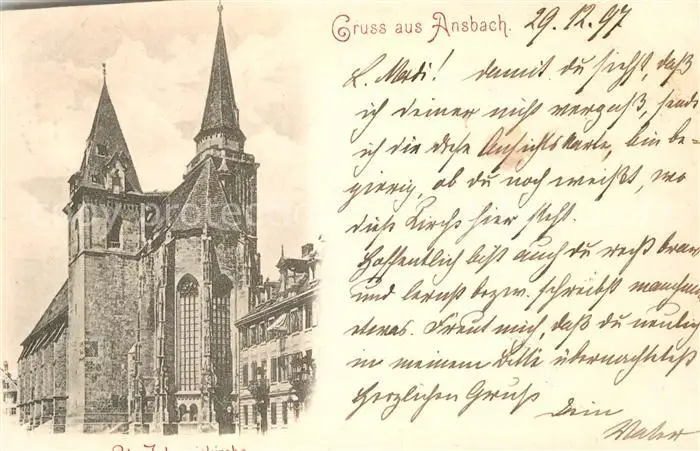 Gruss aus Ansbach. 29.12.97
L. Madi! Damit du siehst, daß
ich deiner nicht vergaß, sende
ich dir diese Ansichtskarte, bin be=
gierig, ob du noch weißt, wo
diese Kirche hier steht.
Hoffentlich bist auch du recht brav
und lernst bezw. schreibst manchmal
etwas. Freut mich, daß du neulich
in meinem Bette übernachtetest
Herzlichen Gruß
Dein
Vater
St. Johanniskirche